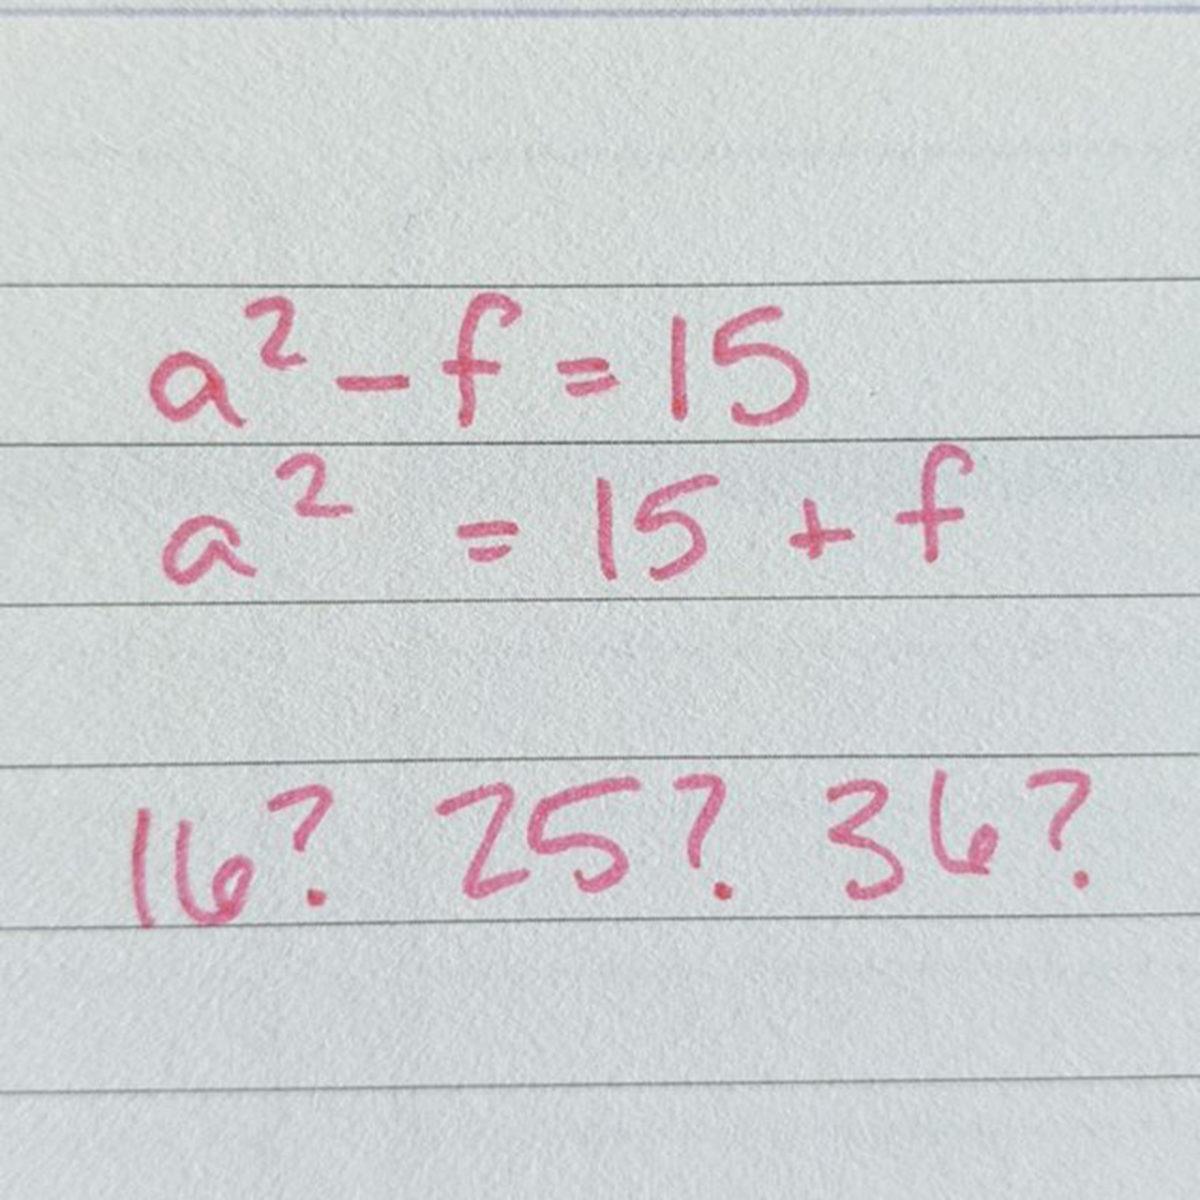 a² - f = 15
a² = 15 + f
16? 25? 36?